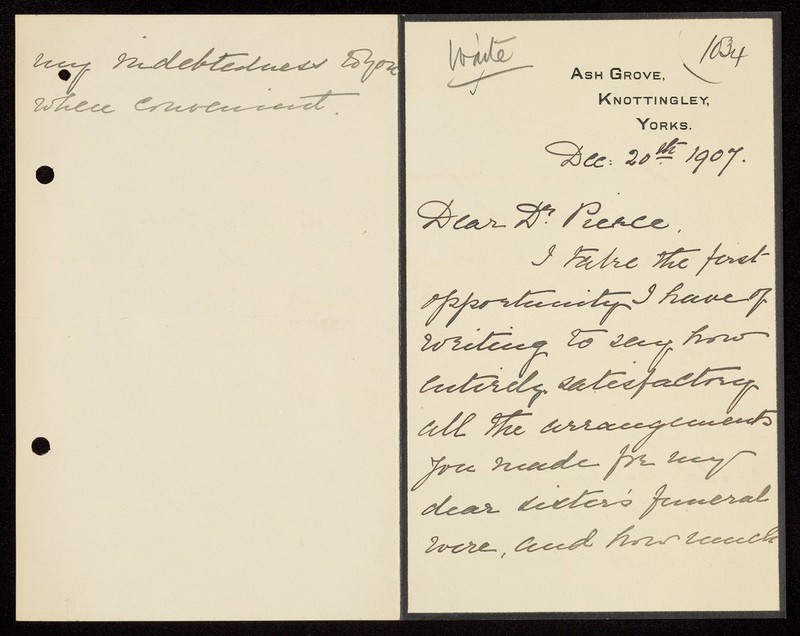 my indebtedness to you
when convenient.
Waite
1034
ASH GROVE,
KNOTTINGLEY,
YORKS.
Dec: 20th 1907.
Dear Dr. Pierce,
I take the first
opportunity I have of
writing to say how
entirely satisfactory
all the arrangements
you made for my
dear sister's funeral
were, and how much